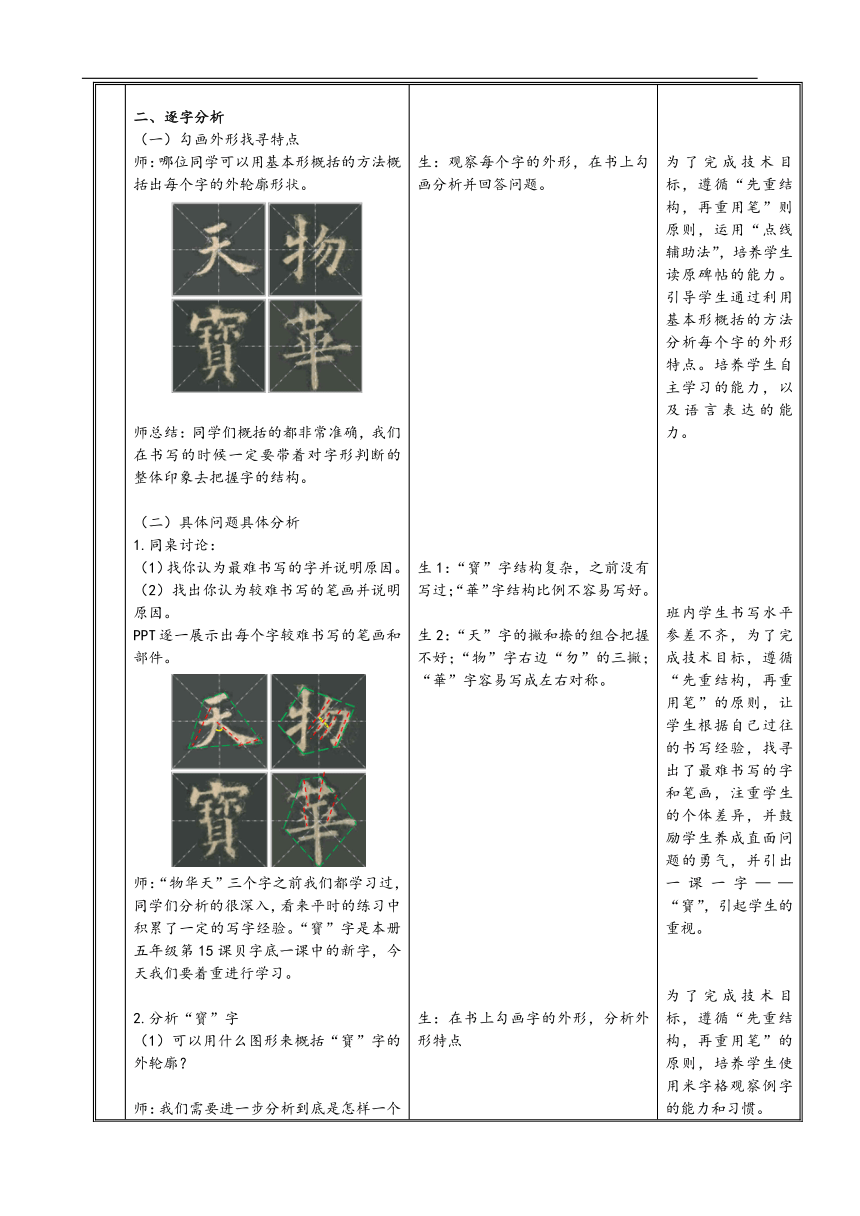 二、逐字分析
（一）勾画外形找寻特点
师:哪位同学可以用基本形概括的方法概
括出每个字的外轮廓形状。
天 物
寶 華
师总结:同学们概括的都非常准确,我们
在书写的时候一定要带着对字形判断的
整体印象去把握字的结构。
（二）具体问题具体分析
1.同桌讨论:
（1)找你认为最难书写的字并说明原因。
（2）找出你认为较难书写的笔画并说明
原因。
PPT逐一展示出每个字较难书写的笔画和
部件。
天 物
寶 華
师:“物华天”三个字之前我们都学习过,
同学们分析的很深入,看来平时的练习中
积累了一定的写字经验。“寶”字是本册
五年级第15课贝字底一课中的新字,今
天我们要着重进行学习。
2.分析“寶”字
（1）可以用什么图形来概括“寶”字的
外轮廓?
师:我们需要进一步分析到底是怎样一个
生: 观察每个字的外形, 在书上勾
画分析并回答问题。
生1:“寶”字结构复杂, 之前没有
写过;“華”字结构比例不容易写好。
生2:“天”字的撇和捺的组合把握
不好;“物”字右边“勿”的三撇;
“華”字容易写成左右对称。
生: 在书上勾画字的外形, 分析外
形特点
为了完成技术目
标, 遵循“先重结
构, 再重用笔”则
原则, 运用“点线
辅助法”, 培养学生
读原碑帖的能力。
引导学生通过利用
基本形概括的方法
分析每个字的外形
特点。培养学生自
主学习的能力, 以
及语言表达的能
力。
班内学生书写水平
参差不齐, 为了完
成技术目标, 遵循
“先重结构, 再重
用笔”的原则, 让
学生根据自己过往
的书写经验, 找寻
出了最难书写的字
和笔画, 注重学生
的个体差异, 并鼓
励学生养成直面问
题的勇气, 并引出
一课一字——
“寶”, 引起学生的
重视。
为了完成技术目
标, 遵循“先重结
构, 再重用笔”的
原则, 培养学生使
用米字格观察例字
的能力和习惯。